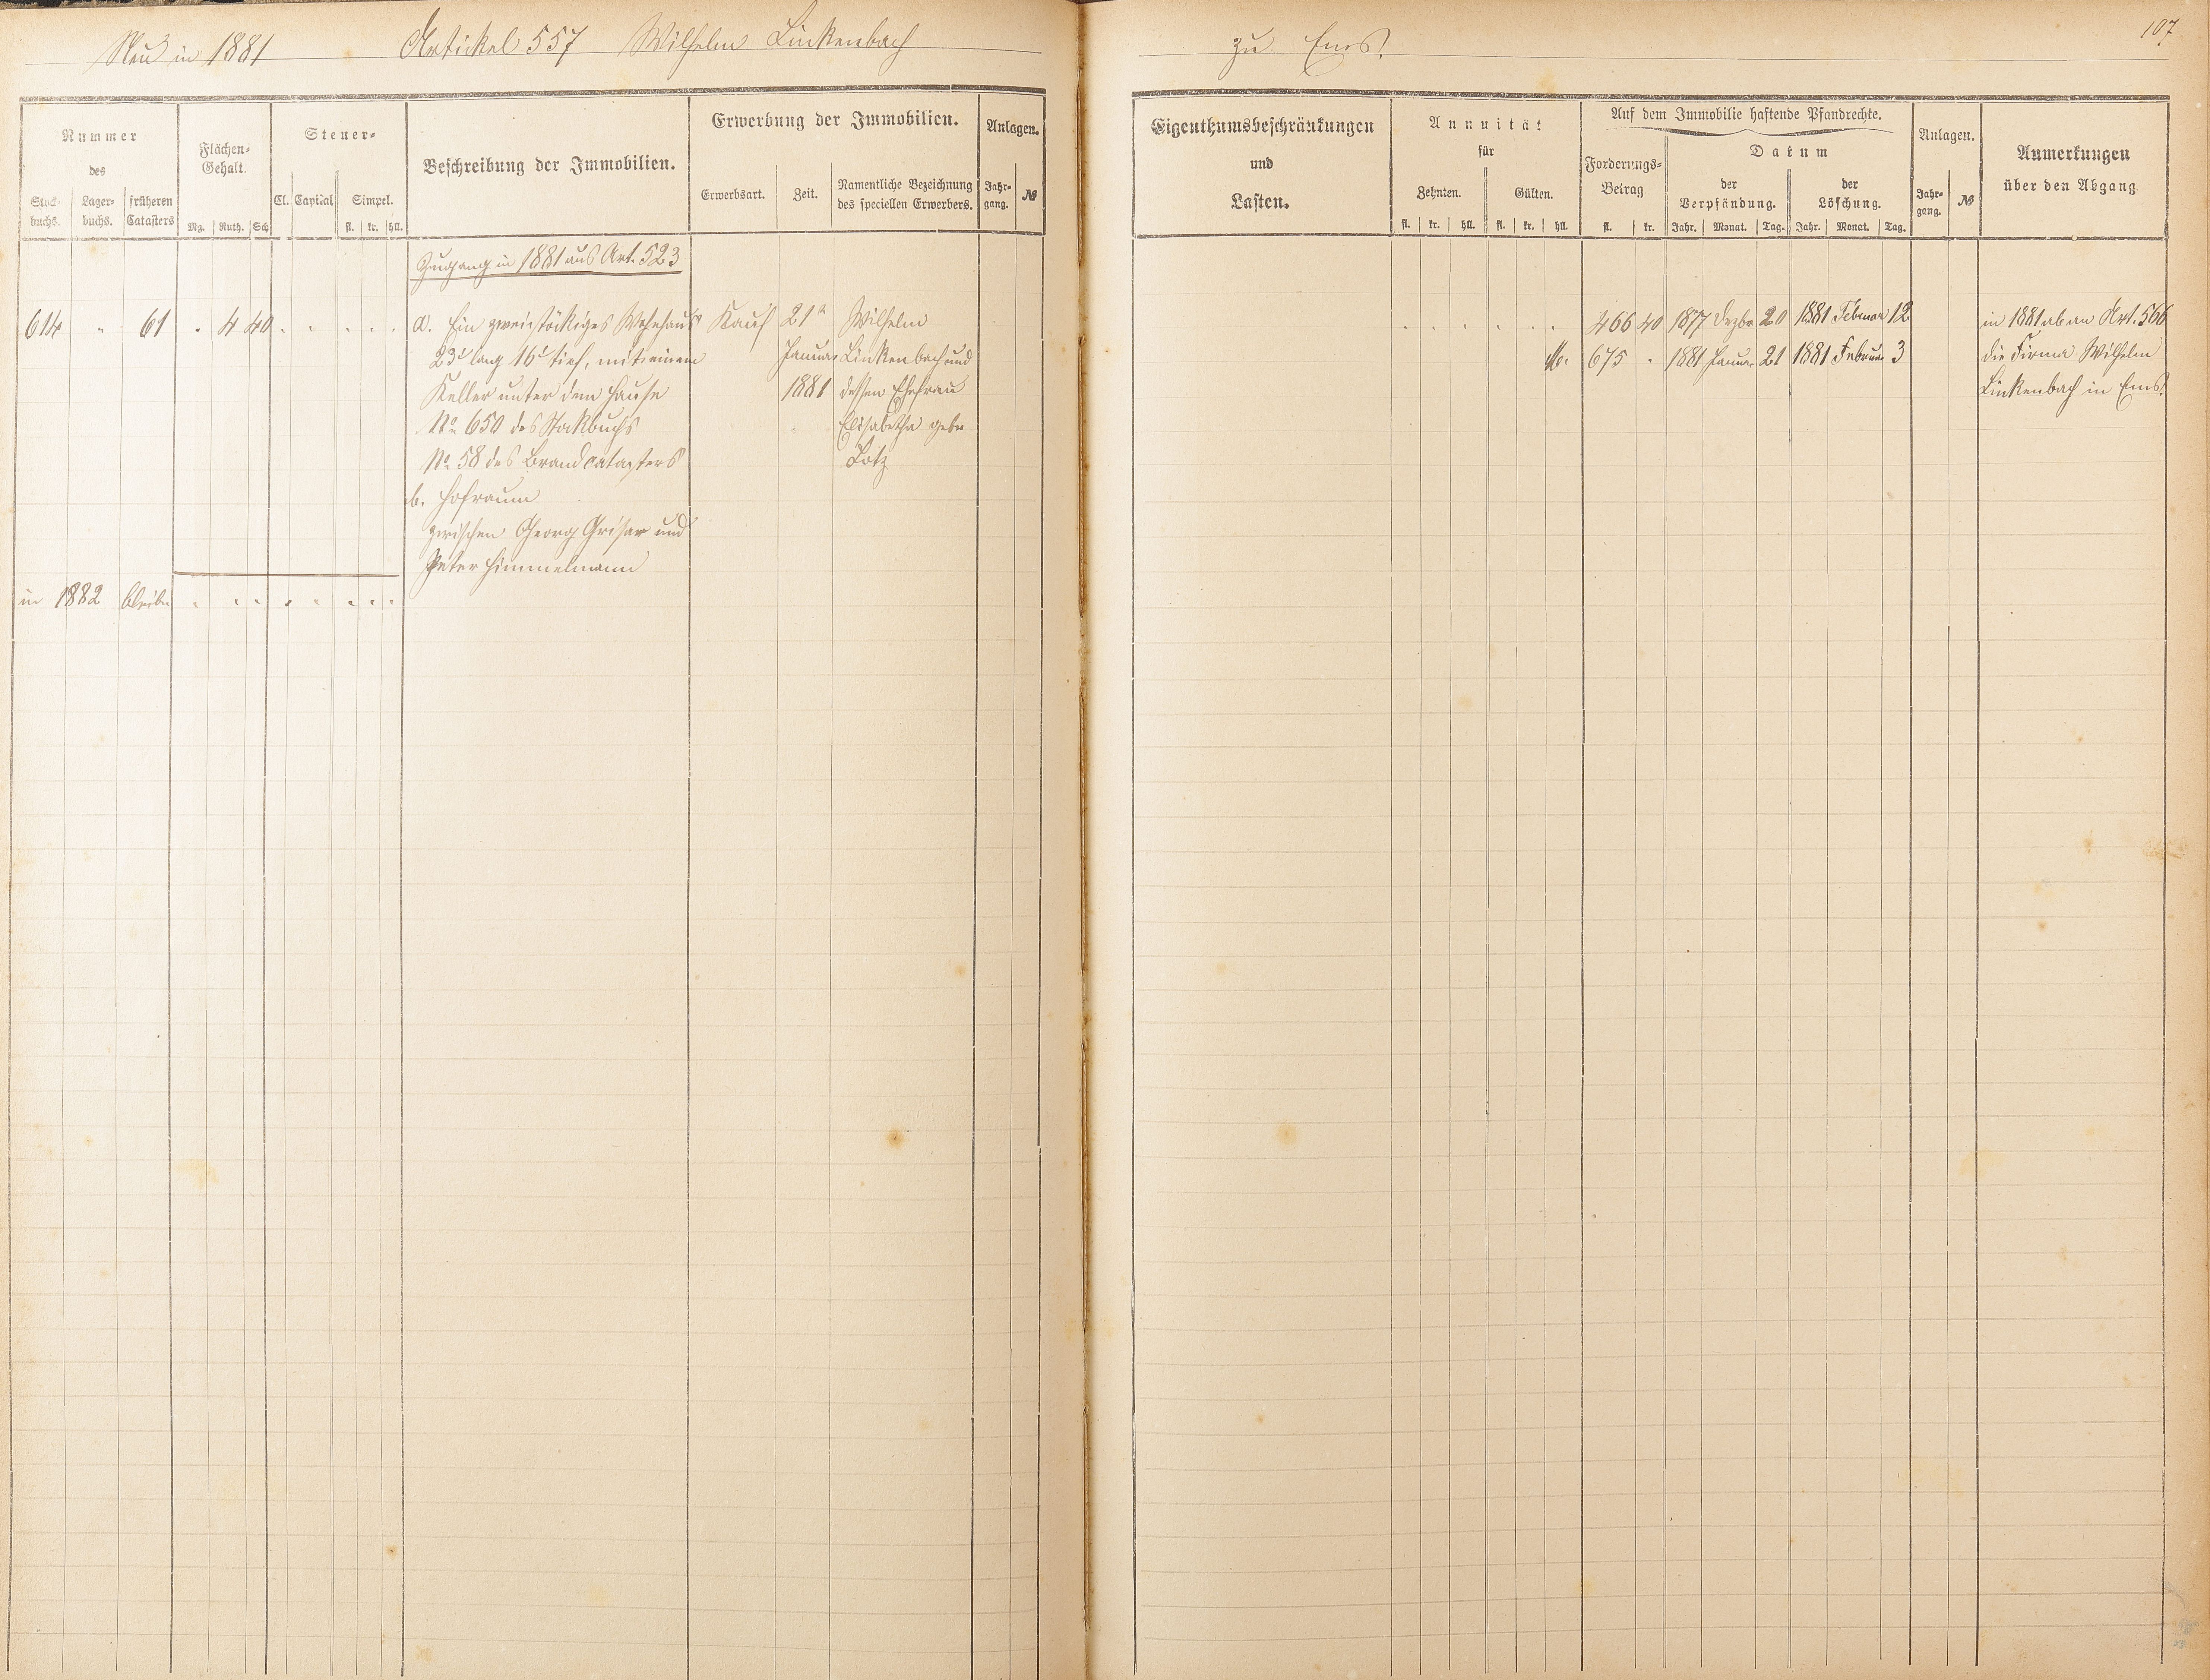 Neu in 1881 Artickel 557 Wilhelm Linkenbach zu Ems. 107
Nummer
des
Stock-
buchs.
Lager-
buchs.
früheren
Catasters
Flächen-
Gehalt.
Mg. Ruth. Sch.
Steuer-
Cl. Capital Simpel.
fl. kr. hll.
Beschreibung der Immobilien.
Erwerbung der Immobilien.
Erwerbsart. Zeit.
Namentliche Bezeichnung
des speciellen Erwerbers.
Anlagen.
Jahr-
gang.
№
Eigenthumsbeschränkungen
und
Lasten.
Annuität
für
Zehnten. Gülten.
fl. kr. hll. fl. kr. hll.
Auf dem Immobilie haftende Pfandrechte.
Forderungs-
Betrag
fl. kr.
Datum
der
Verpfändung.
Jahr. Monat. Tag.
der
Löschung.
Jahr. Monat. Tag.
Anlagen.
Jahr-
gang.
№
Anmerkungen
über den Abgang.
Zugang in 1881 aus Art. 523
614 " 61 . 4 40 . . . . .
a. Ein zweistöckiges Wohnhaus
23' lang 16' tief, mit einem
Keller unter dem Hause
No 650 des Stockbuchs
No 58 des Brandcatasters
b. Hofraum
zwischen Georg Grisar und
Peter Himmelmann
Kauf
21
Januar
1881
Wilhelm
Linkenbach und
dessen Ehefrau
Elisabetha geb
Lotz
. . . . . . 466 40 1877 Dezbr 20 1881 Februar 12
M. 675 . 1881 Januar 21 1881 Februar 3
in 1881 ab an Art. 566
die Firma Wilhelm
Linkenbach in Ems.
in 1882 bleibe . . . . . . . .